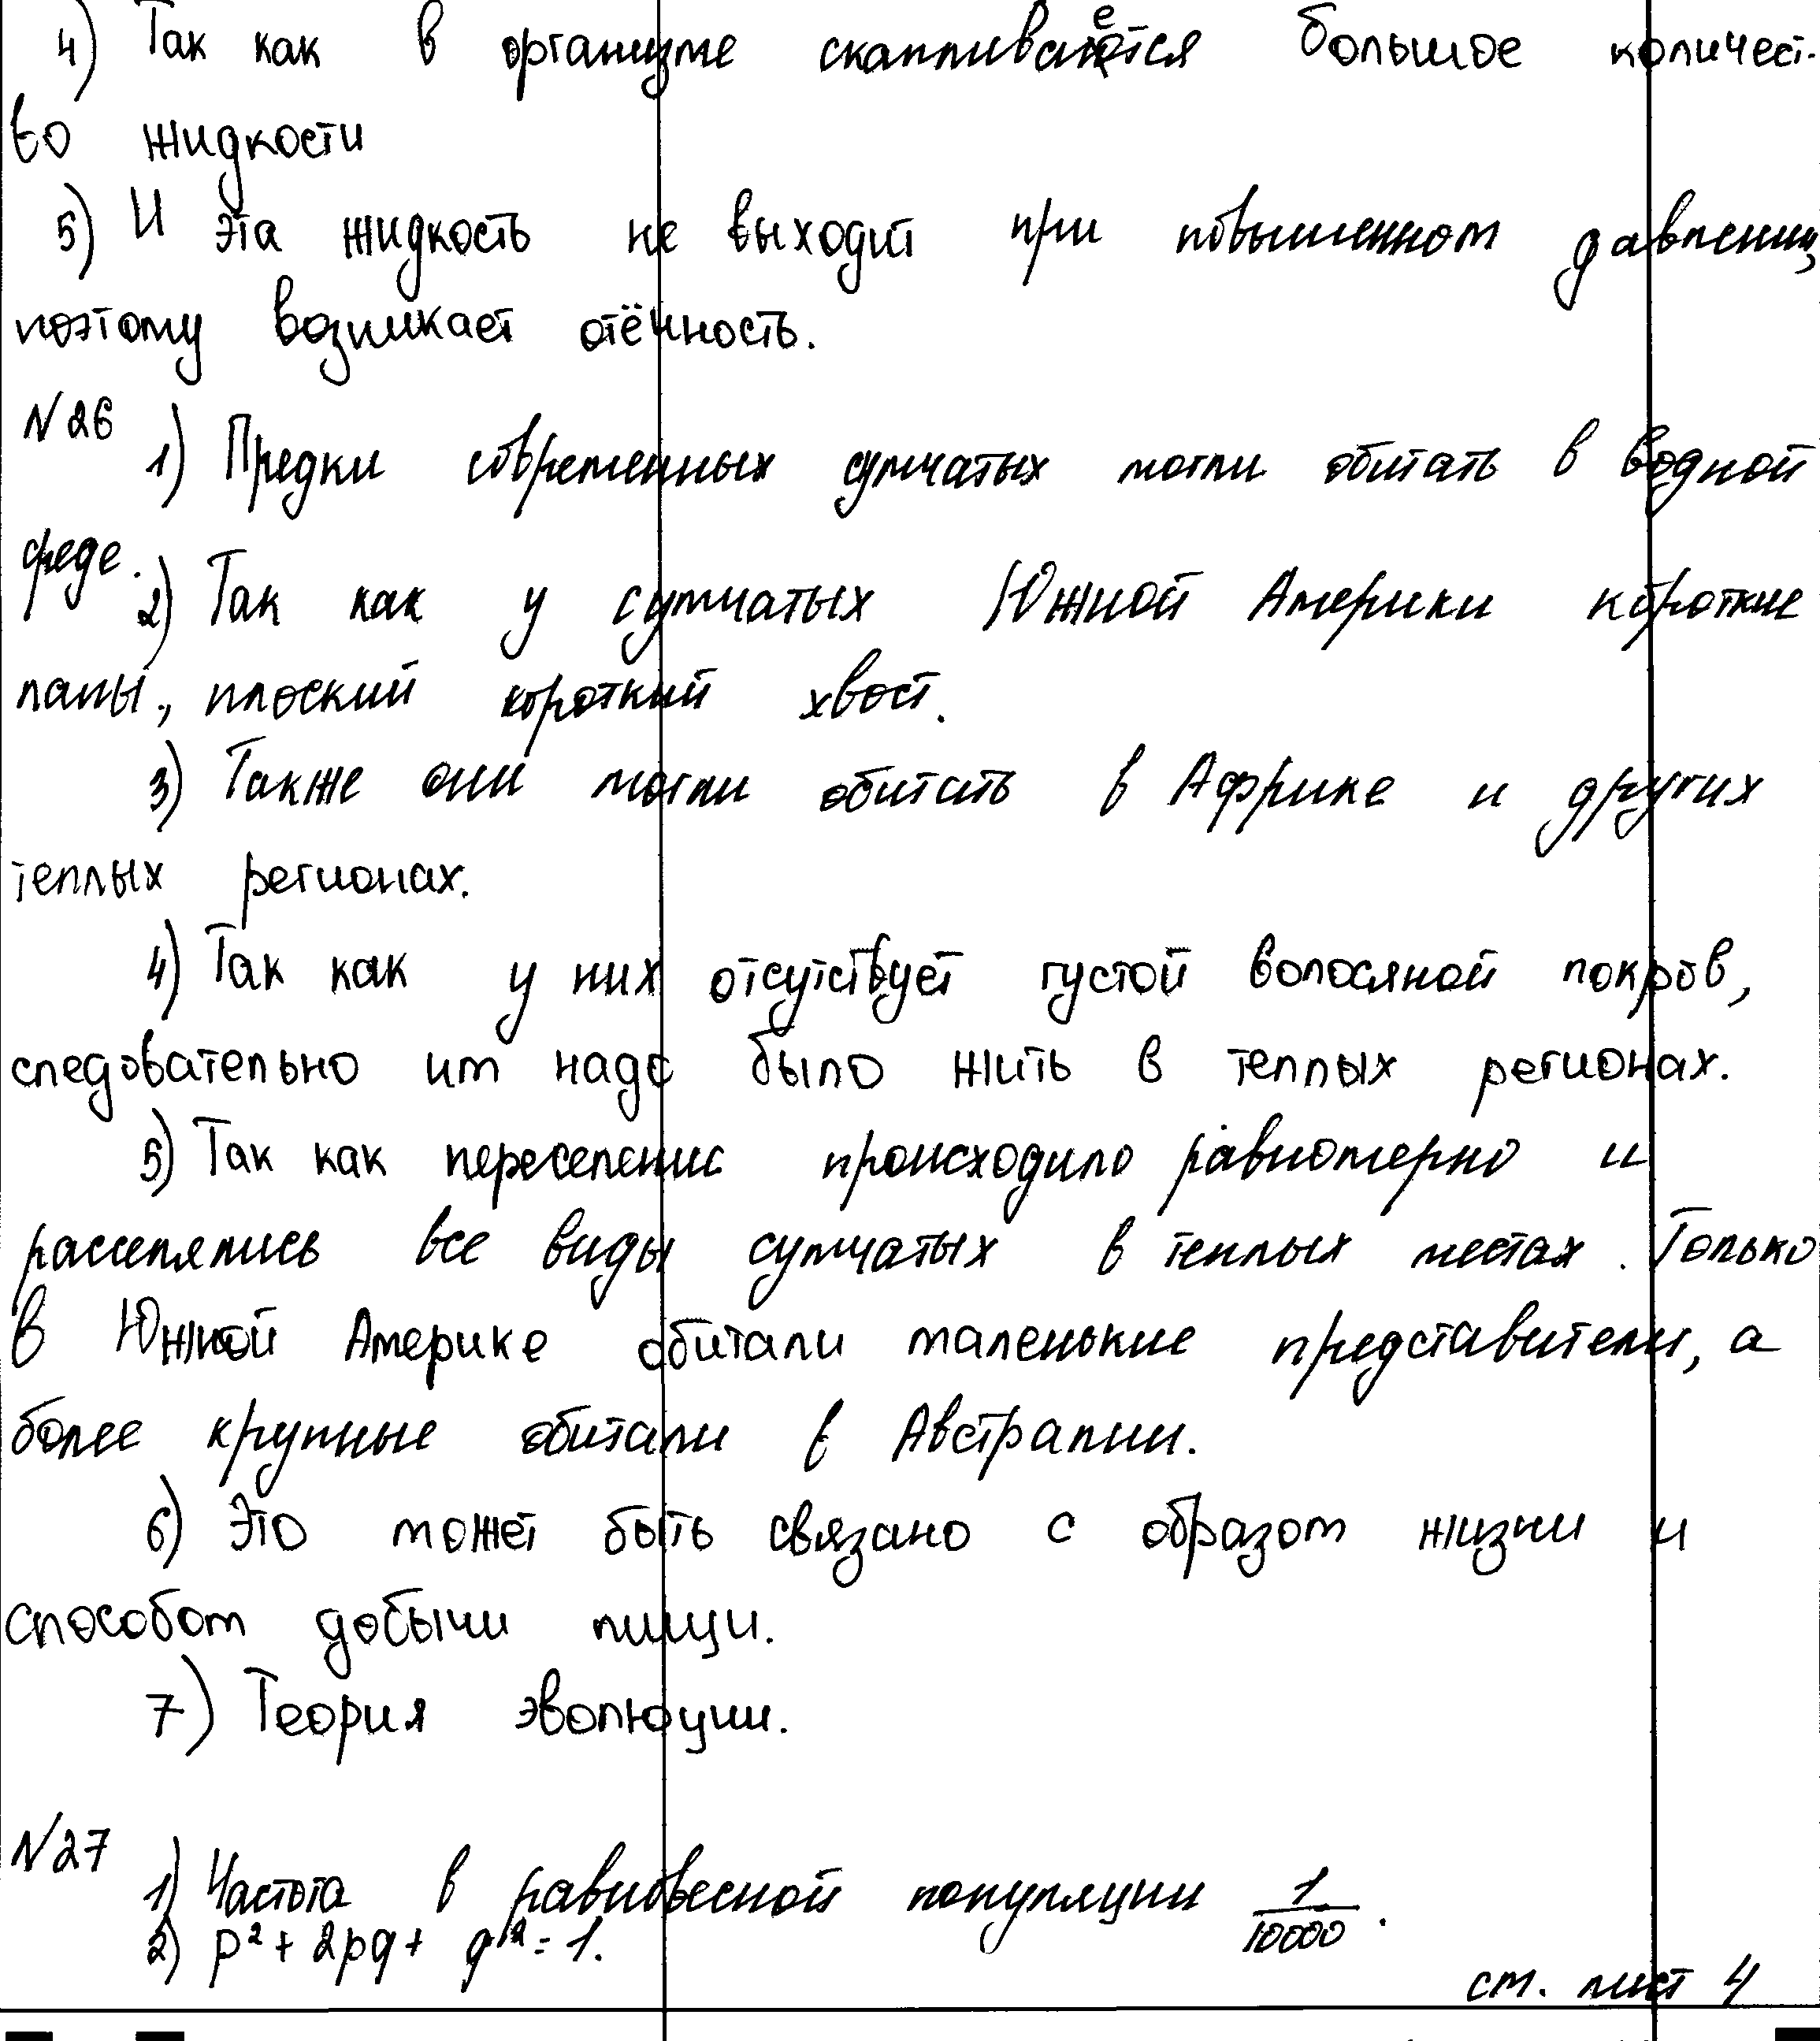 4) Так как в организме скапливается большое количест-
во жидкости
5) И эта жидкость не выходит при повышенном давлении,
поэтому возникает отёчность.
№26
1) Предки современных сумчатых могли обитать в водной
среде.
2) Так как у сумчатых Южной Америки короткие
лапы, плоский короткий хвост.
3) Также они могли обитать в Африке и других
теплых регионах.
4) Так как у них отсутствует густой волосяной покров,
следовательно им надо было жить в теплых регионах.
5) Так как переселение происходило равномерно и
расселялись все виды сумчатых в теплых местах. Только
в Южной Америке обитали маленькие представители, а
более крупные обитали в Австралии.
6) Это может быть связано с образом жизни и
способом добычи пищи.
7) Теория эволюции.
№27
1) Частота в равновесной популяции 1/10000.
2) p²+ 2pq+ q²= 1.
см. лист 4